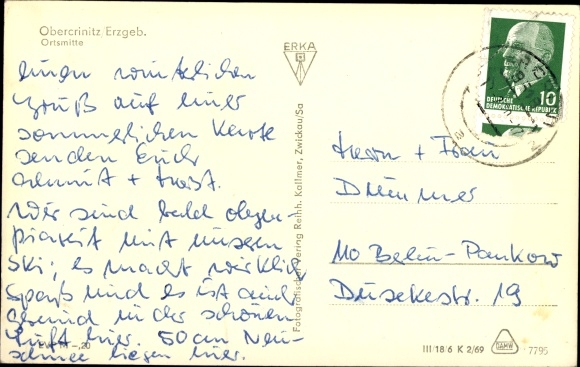 Obercrinitz/Erzgeb.
Ortsmitte
einen winterlichen
Gruß auf einer
sommerlichen Karte
senden Euch
+ Horst.
Wir sind bald olym-
piareif mit unseren
Ski; es macht wirklich
Spaß und es ist auch
gesund in der schönen
Luft hier. 50 cm Neu-
schnee liegen hier.
EVP M -,20
ERKA
Fotografischer Verlag Reinh. Kallmer, Zwickau/Sa
DEUTSCHE
DEMOKRATISCHE REPUBLIK
10
Herrn + Frau
110 Berlin-Pankow
Dusekestr. 19
III/18/6 K 2/69
DAMW
7795